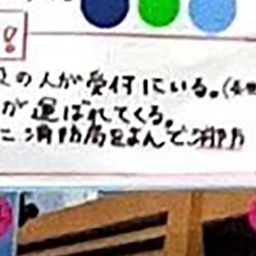 !
の人が受付にいる。
が運ばれてくる。
に消防局をよんで消防